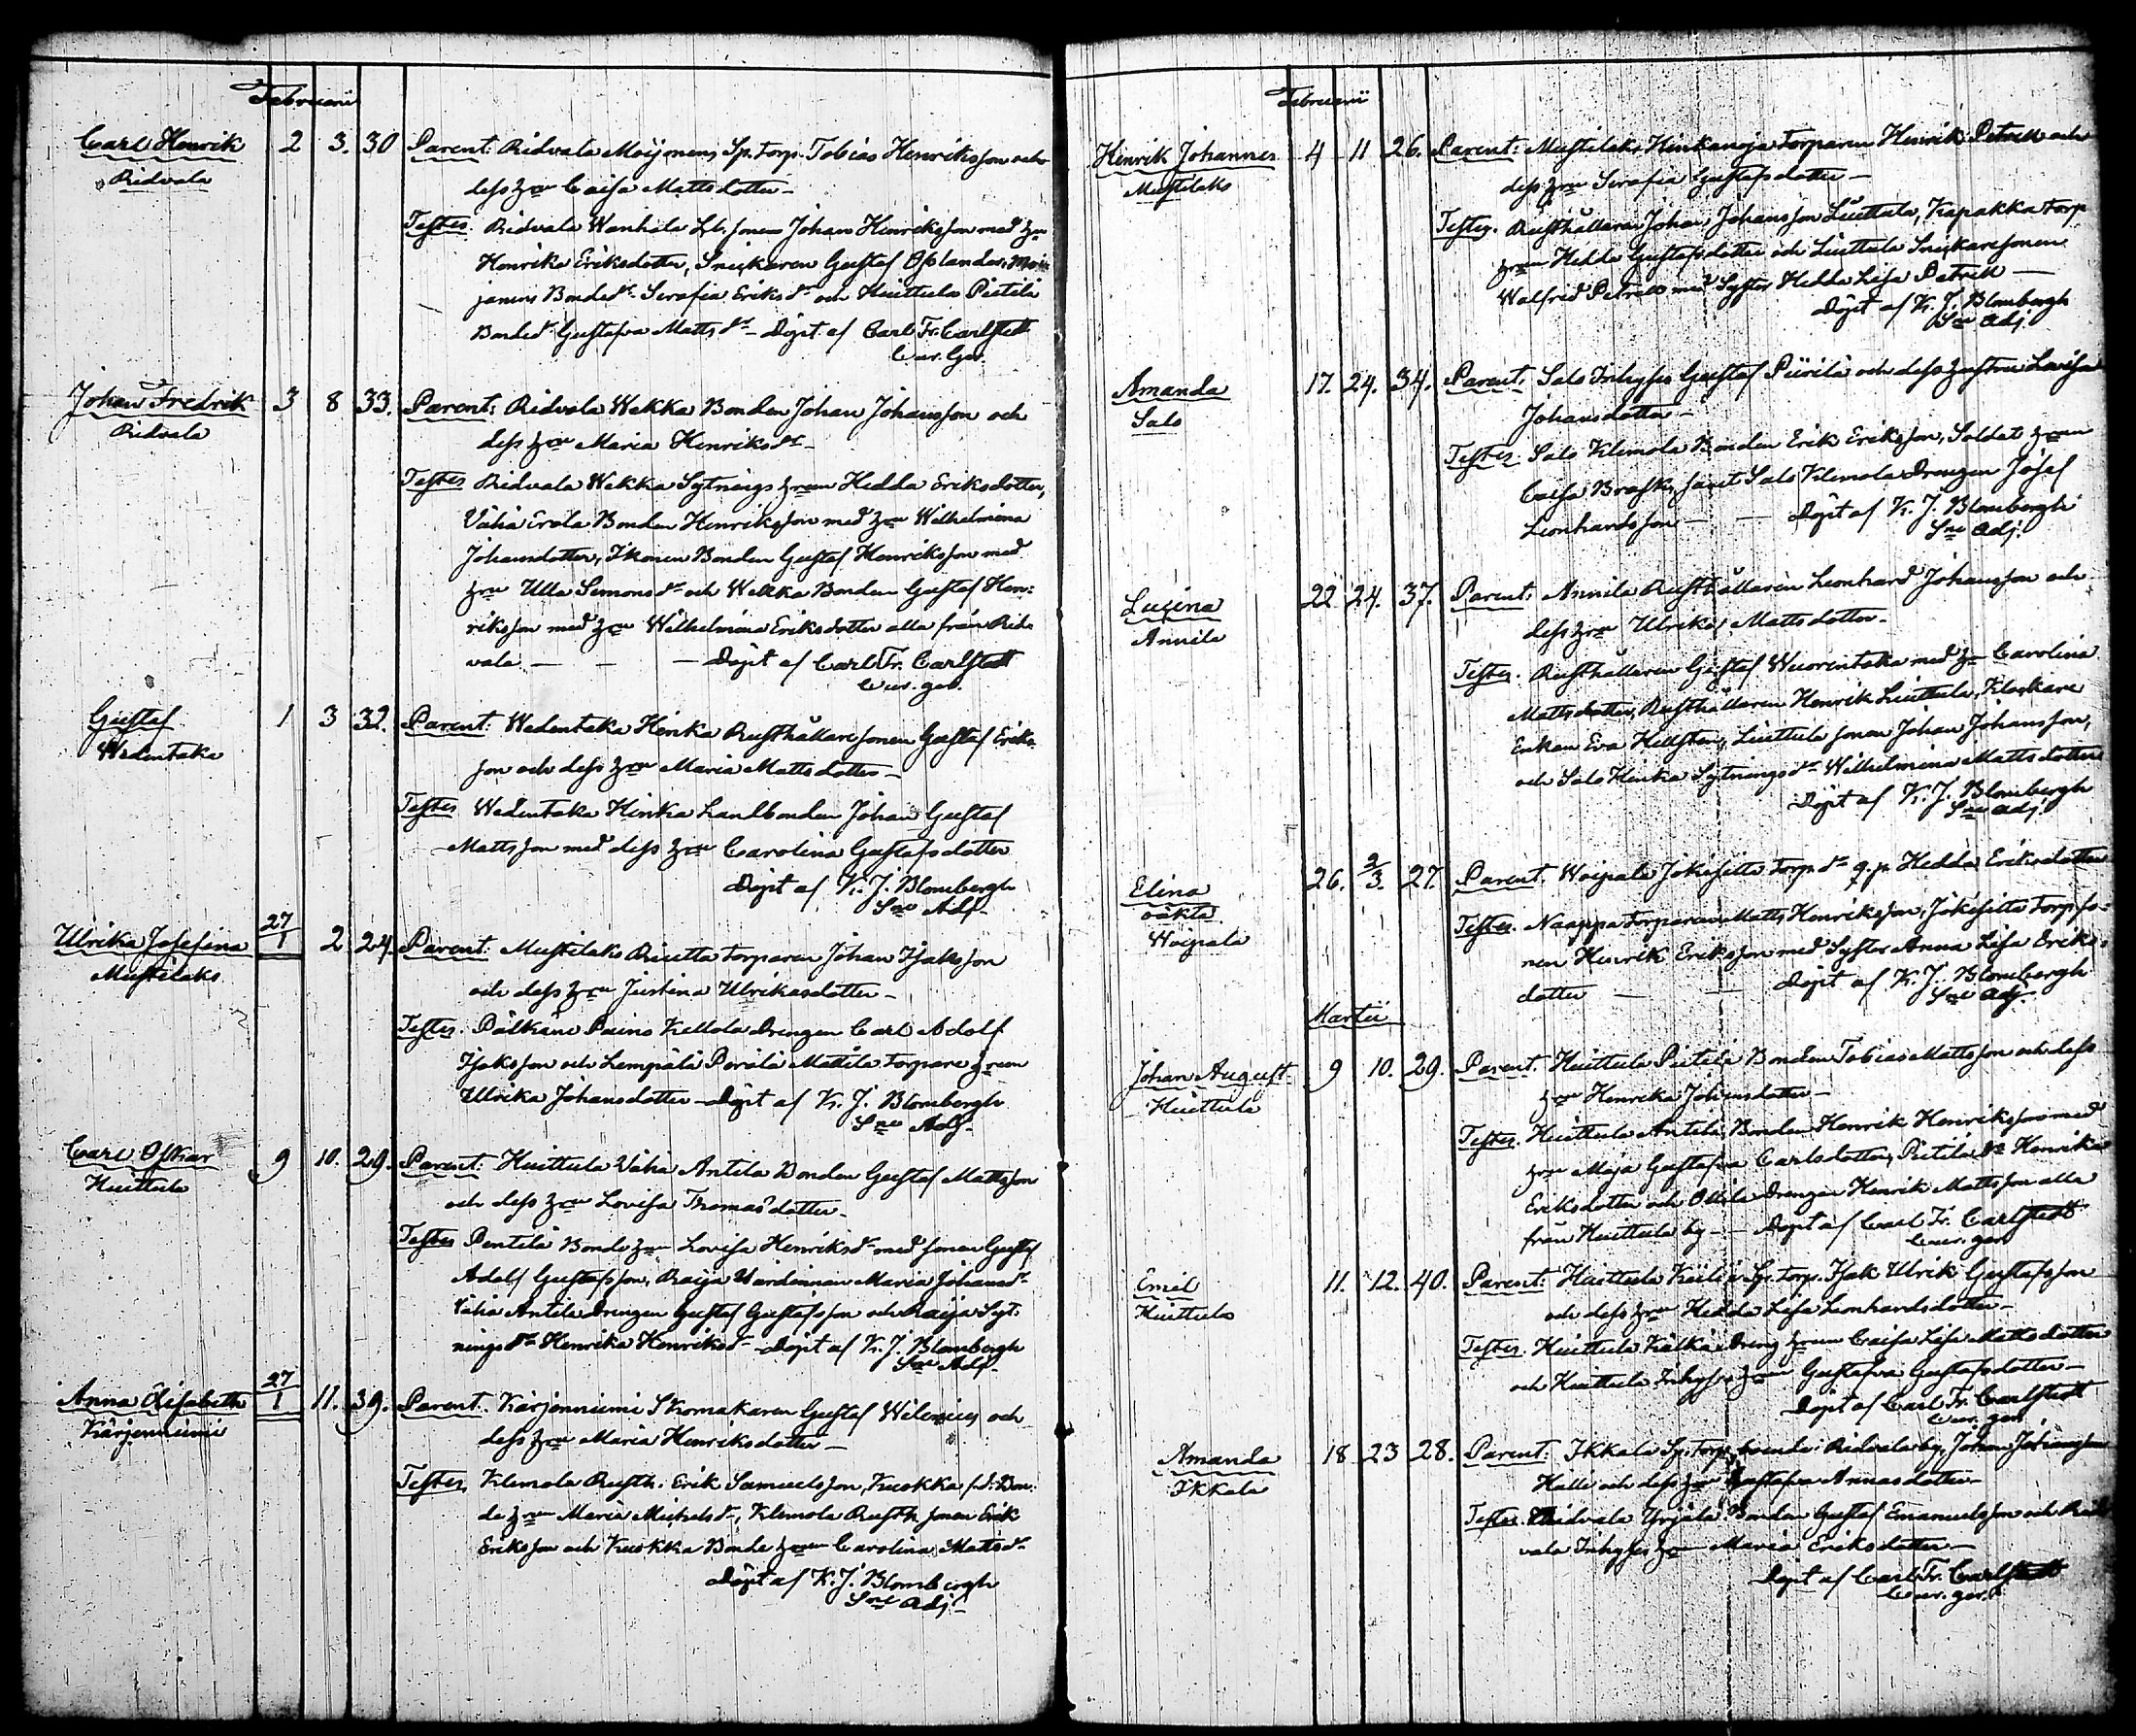 Februarii
Carl Henrik 2 3. 30 Parent: Ridvala Moijonens Sp. torp. Tobias Henriksson och
Ridvala dess hru Caisa Mattsdotter
Testes. Ridvala Wanhala Lb. sonen Johan Henriksson med hru
Henrika Eriksdotter, Snickaren Gustaf Oslander,
Bonded:r Serafia Eriks d:r och Huittula Pietilä
Bonded:r Gustafva Matts d:r Döpt af Carl Fr. Carlstedt
Cur. ger.
Johan Fredrik 3 8 33. Parent: Ridvala Wekka Bonden Johan Johansson och
Ridvala dess hru Maria Henriks d:r
Testes Ridvala Wekka Sytnings hrun Hedda Eriksdotter,
Vähä Erola Bonden Henriksson med hru Wilhelmina
Johansdotter, Ikonen Bonden Gustaf Henriksson med
hru Ulla Simons d:r och Wekka Bonden Gustaf Hen:
riksson med hru Wilhelmina Eriksdotter alla från Rid:
vala Döpt af Carl Fr. Carlstedt
Cur. ger.
Gustaf 1 3 32. Parent: Wedentaka Hinka Rusthållaresonen Gustaf Eriks
Wedentaka son och dess hru Maria Mattsdotter
Testes Wedentaka Hinka Landbonden Johan Gustaf
Mattsson med dess hru Carolina Gustafsdotter
Döpt af K. J. Blombergh
Sne Adj.
Ulrika Josefina 27/1 2 24. Parent: Mustilaks Riutta torparen Johan Isaksson
Mustilaks och dess hru Justina Ulrikasdotter
Testes. Pälkäne Painо Kellola Drengen Carl Adolf
Isaksson och Lempäla Perälä Mattila torpare hrun
Ulrika Johansdotter Döpt af K. J. Blombergh
Sne Adj.
Carl Oskar 9 10. 29. Parent: Huittula Vähä Antila Bonden Gustaf Mattsson
Huittula och dess hru Lovisa Thomasdotter
Testes Pentilä Bonde hru Lovisa Henriks d:r med sonen Gustaf
Adolf Gustafsson, Raija Värdinnan Maria Johans d:r
Vähä Antila Drengen Gustaf Gustafsson och Raija Syt:
nings d:r Henrika Henriks d:r Döpt af K. J. Blombergh
Sne Adj.
Anna Elisabeth 27/1 11. 39. Parent. Kärjenniemi Skomakaren Gustaf Wilenius och
Kärjenniemi dess hru Maria Henriksdotter
Testes Klemola Rusth. Erik Samuelsson, Kuokka f.d. Bon:
de hru Maria Michels d:r, Klemola Rusth. sonen Erik
Eriksson och Kuokka Bonde hrun Carolina Matts d:r
Döpt af K. J. Blombergh
Sne Adj.
Februarii
Henrik Johannes 4 11 26. Parent: Mustilaks Hinkanoja torparen Henrik Petrell och
Mustilaks dess hru Serafia Gustafsdotter
Testes. Rusthållaren Johan Johansson Liuttula, Kapakka torp
hrun Hedda Gustafsdotter och Liuttula Snickaresonen
Walfrid Petrell med Syster Hedda Lisa Petrell
Döpt af K. J. Blombergh
Sne Adj.
Amanda 17. 24. 34. Parent: Salo Inhyses Gustaf Piirilä och dess hustru Lovisa
Salo Johansdotter
Testes. Salo Klemola Bonden Erik Eriksson, Soldat hrun
Caisa Brask, samt Salo Klemola Drengen Josef
Leonhardsson Döpt af K. J. Blombergh
Sne Adj.
Lusina 22 24. 37. Parent: Annila Rusthållaren Leonhard Johansson och
Annila dess hru Ulrika Mattsdotter
Testes. Rusthållaren Gustaf Wuorentaka med hru Carolina
Mattsdotter, Rusthållaren Henrik Liuttula, Klockare
Enkan Eva Hellsten, Liuttula sonen Johan Johansson,
och Salo Hinka Sytnings d:r Wilhelmina Mattsdotter
Döpt af K. J. Blombergh
Sne Adj.
Elina 26. 2/3. 27. Parent. Woipala Jokisilta torp. d:r q.p. Hedda Eriksdotter
oäkta Testes. Naappa torparen Matts Henriksson, Jokisilta torp. so:
Woipala nen Henrik Eriksson med Syster Anna Lisa Eriks:
dotter Döpt af K. J. Blombergh
Sne Adj.
Martii
Johan August 9 10. 29. Parent. Huittula Pietilä Bonden Tobias Mattsson och dess
Huittula hru Henrika Johansdotter
Testes. Huittula Antila Bonden Henrik Henriksson med
hru Maja Gustafva Carlsdotter, Pietilä d:r Henrika
Eriksdotter och Ottila Drengen Henrik Mattsson alla
från Huittula by Döpt af Carl Fr. Carlstedt
Cur. ger.
Emil 11. 12. 40. Parent: Huittula Sp. torp. Isak Ulrik Gustafsson
Huittula och dess hru Hedda Lisa Leonhardsdotter
Testes. Huittula Kälkäi Dreng hrun Caisa Lisa Mattsdotter
och Huittula Inhyses hru Gustafva Gustafsdotter
Döpt af Carl Fr. Carlstedt
Cur. ger.
Amanda 18 23 28. Parent: Ikkala Sp. torp. boende i Ridvala by, Johan Johansson
Ikkala Halli och dess hru Gustafva Annasdotter
Testes. Ridvala Yrjälä Bonden Gustaf Emanuelsson och Rid
vala Inhyses hru Maria Eriksdotter
Döpt af Carl Fr. Carlstedt
Cur. ger.